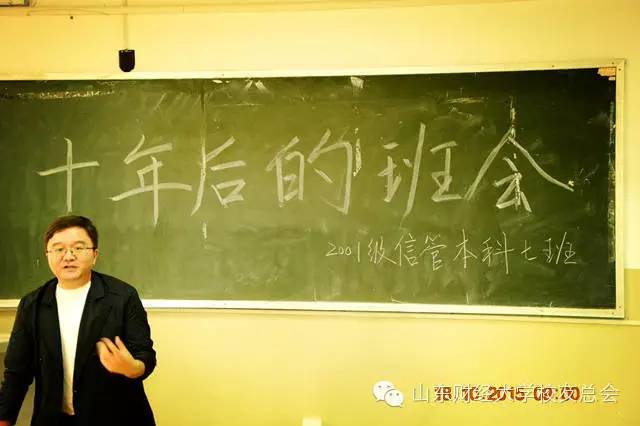 十年后的班会
2001级信管本科七班
山东财经大学校友总会
2015 00:00